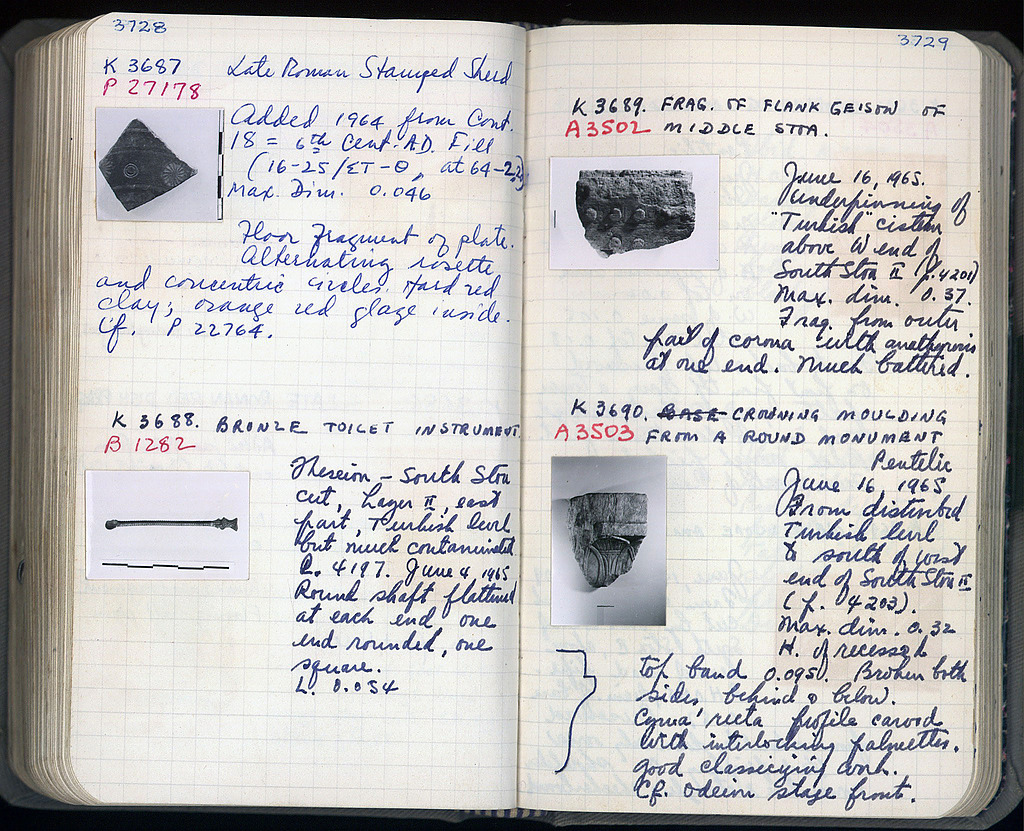 3728
K 3687 Late Roman Stamped Sherd
P 27178
Added 1964 from Cont.
18 = 6th Cent. A.D. Fill
(16-25/ΣΤ-Θ, at 64-2.25)
Max. Dim. 0.046
Floor Fragment of plate.
Alternating rosette
and concentric circles. Hard red
clay; orange red glaze inside.
Cf. P 22764.
K 3688. BRONZE TOILET INSTRUMENT.
B 1282
Theseion – South Stoa
cut, Layer II, east
part, Turkish level
but much contaminated
p. 4197. June 4, 1965
Round shaft flattened
at each end, one
end rounded, one
square.
L. 0.054
3729
K 3689. FRAG. OF FLANK GEISON OF
A 3502 MIDDLE STOA.
June 16, 1965.
Underpinning of
"Turkish" cistern
above W end of
South Stoa II (p. 4201)
Max. dim. 0.37.
Frag. from outer
part of corona with anathyrosis
at one end. Much battered.
K 3690. BASE CROWNING MOULDING
A 3503 FROM A ROUND MONUMENT
Pentelic
June 16 1965
From disturbed
Turkish level
to south of west
end of South Stoa II
(p. 4203).
Max. dim. 0.32
H. of recessed
top band 0.095. Broken both
sides behind & below.
Cyma recta profile carved
with interlocking palmettes.
Good classicizing work.
Cf. Odeion stage front.